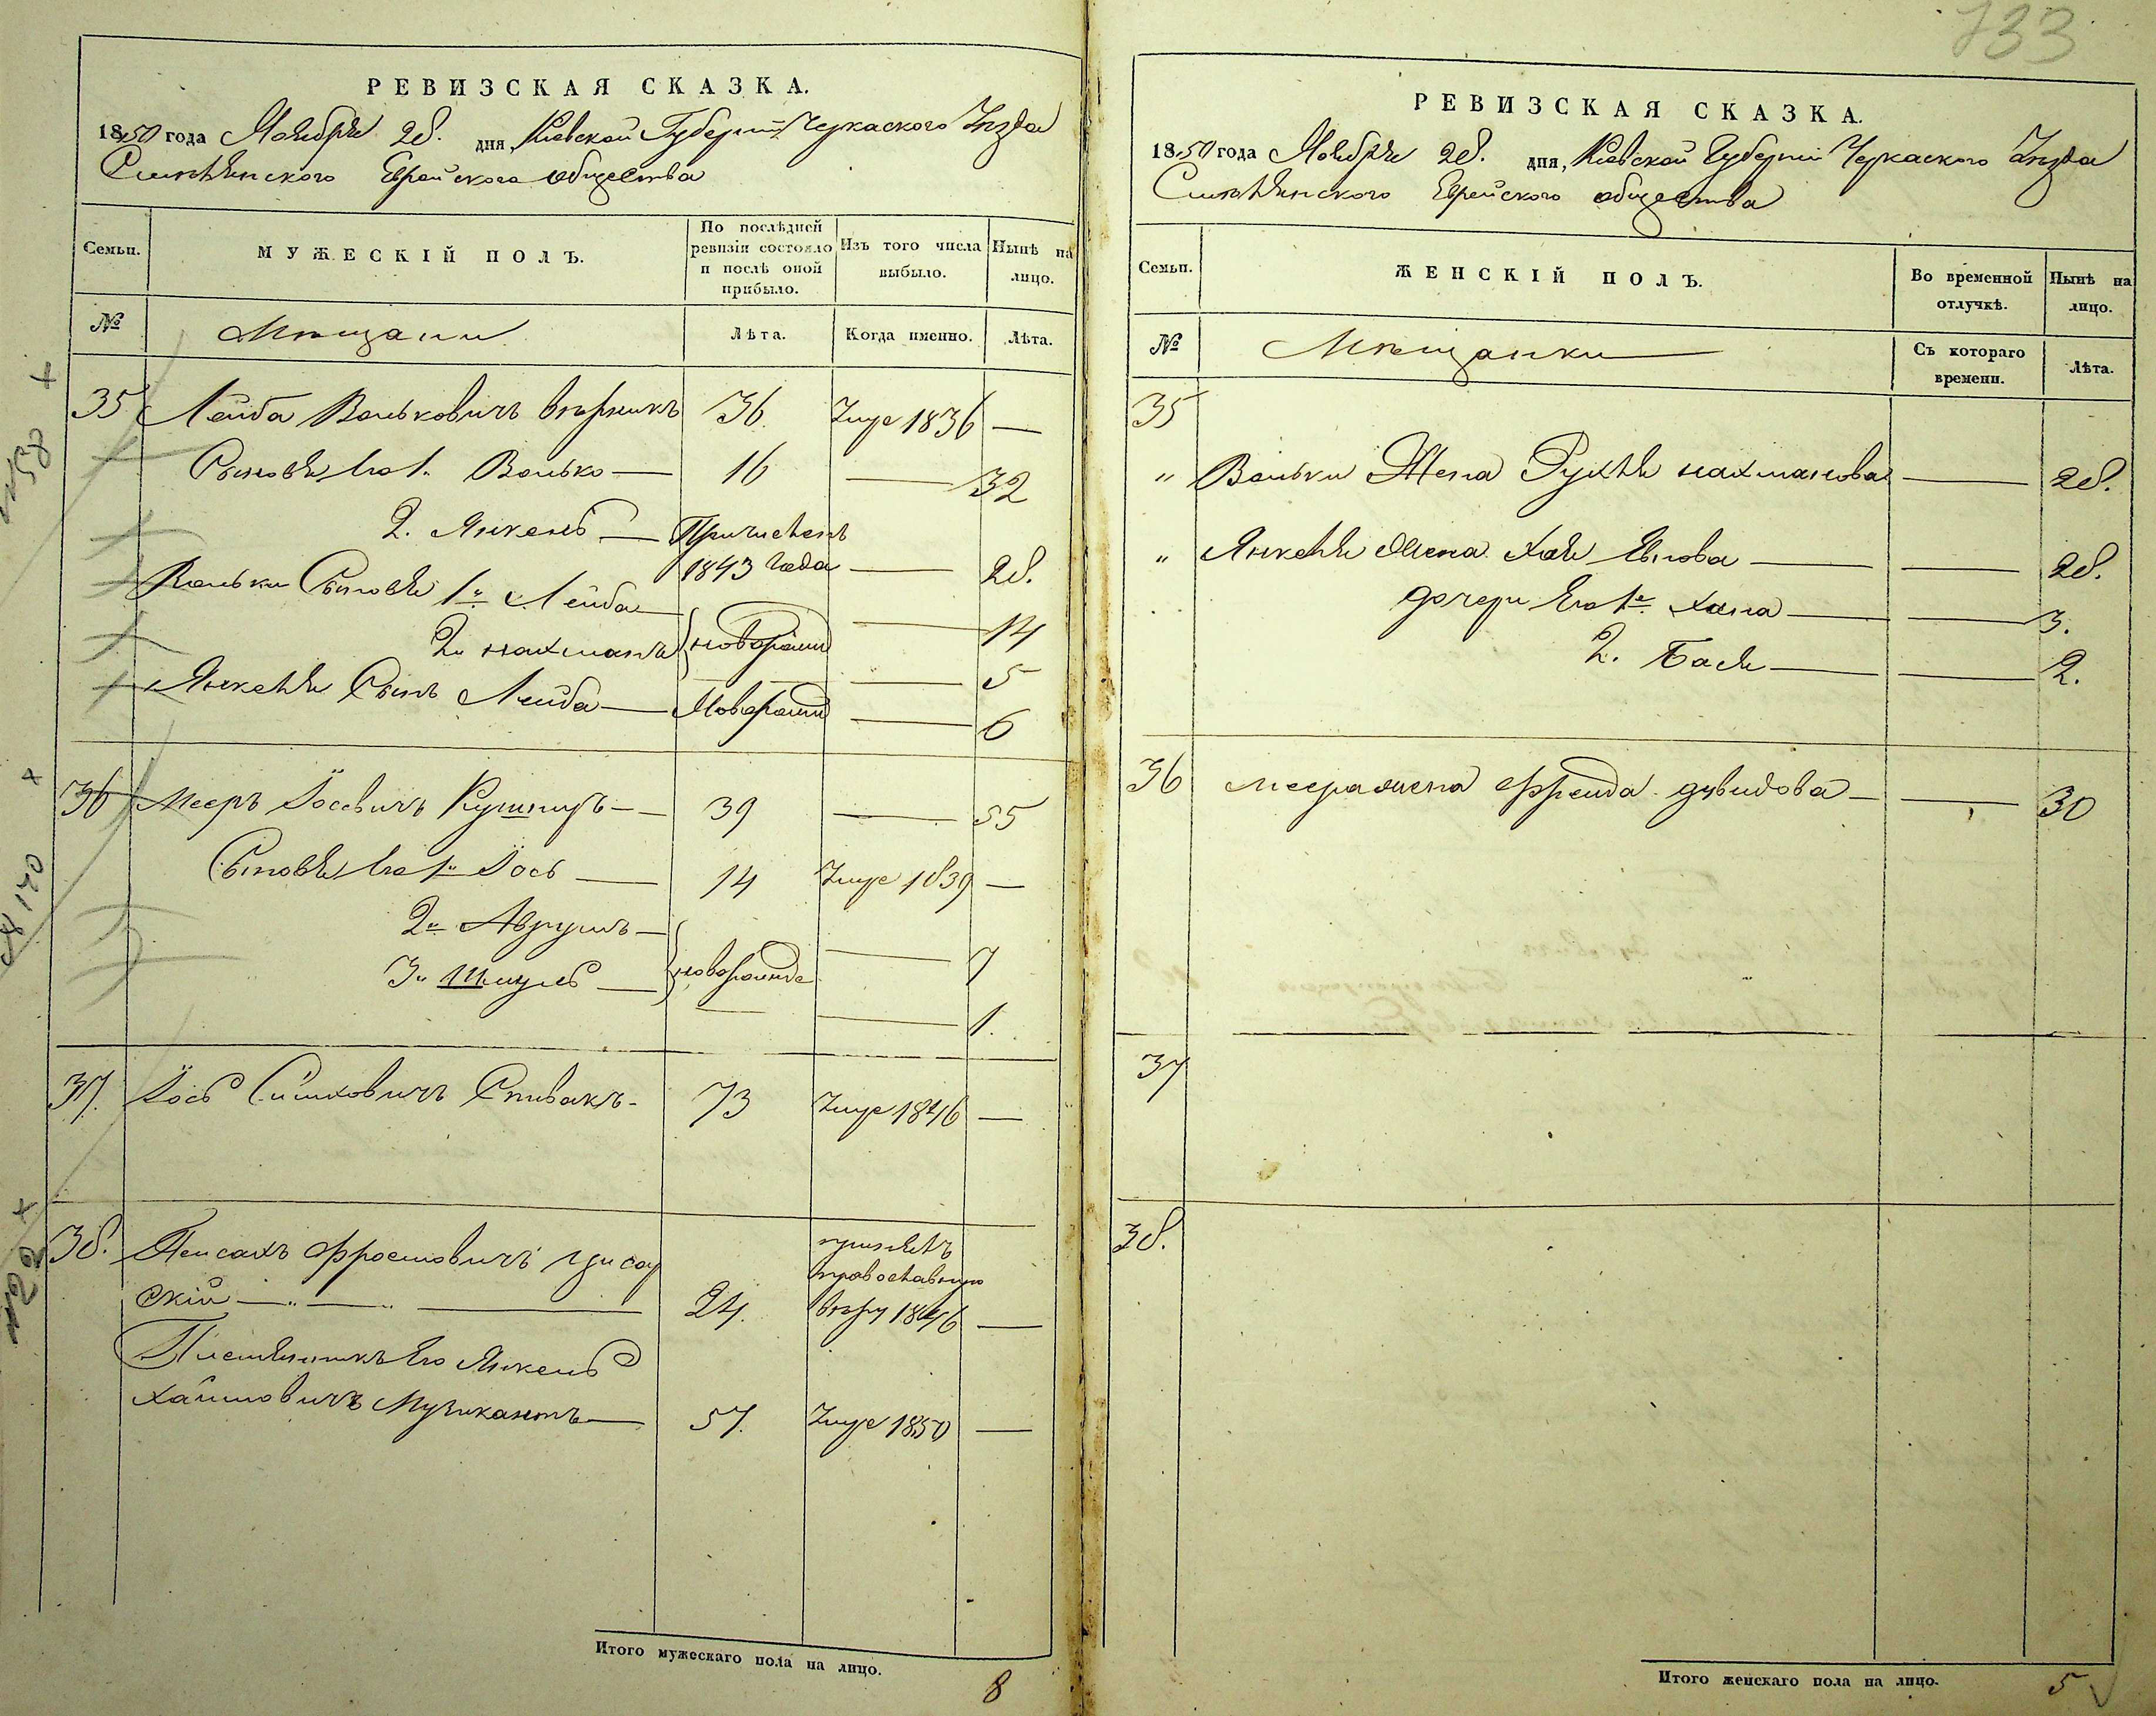 РЕВИЗСКАЯ СКАЗКА.
1850 года Ноября 28. дня, Кіевской Губерніи Черкаского Уѣзда
Смѣлянского Еврейского общества
Семьи. МУЖЕСКІЙ ПОЛЪ. По послѣдней ревизіи состояло и послѣ оной прибыло. Изъ того числа выбыло. Нынѣ на лицо.
№ Мѣщани Лѣта. Когда именно. Лѣта.
35 Лейба Вольковичъ 36. Умре 1836 —
Сыновья Его 1. Волько — 16 — 32
2. Янкель — Причисленъ 1843 Года — 28.
Вольки Сыновья 1й Лейба — 14
2й Нахманъ новорожд — 5
Янкеля Сынъ Лейба — Новорожд — 6
36 Мееръ Іосевичъ 39 — 55
Сыновья Его 1й Іось — 14 Умре 1839 —
2й Аврумъ — 7
3й Шмуль — новорожде — 1.
37. Іось Симховичъ Спивакъ - 73 Умре 1846 —
38. Пейсахъ
скій — 24. принялъ православную вѣру 1846 —
Племянникъ Его Янкель
Хаимовичъ Музикантъ — 57. Умре 1850 —
Итого мужескаго пола на лицо. 8
733
РЕВИЗСКАЯ СКАЗКА.
1850 года Ноября 28. дня, Кіевской Губерніи Черкаского Уѣзда
Смѣлянского Еврейского общества
Семьи. ЖЕНСКІЙ ПОЛЪ. Во временной отлучкѣ. Нынѣ на лицо.
№ Мѣщанки Съ котораго времени. Лѣта.
35
" Вольки Жена Рухля Нахманова — 28.
" Янкеля Жена Хая — 28.
дочери Его 1я Хана — 3.
2. Бася — 2.
36 Меера жена Фрейда Давидова — 30
37
38.
Итого женскаго пола на лицо. 5